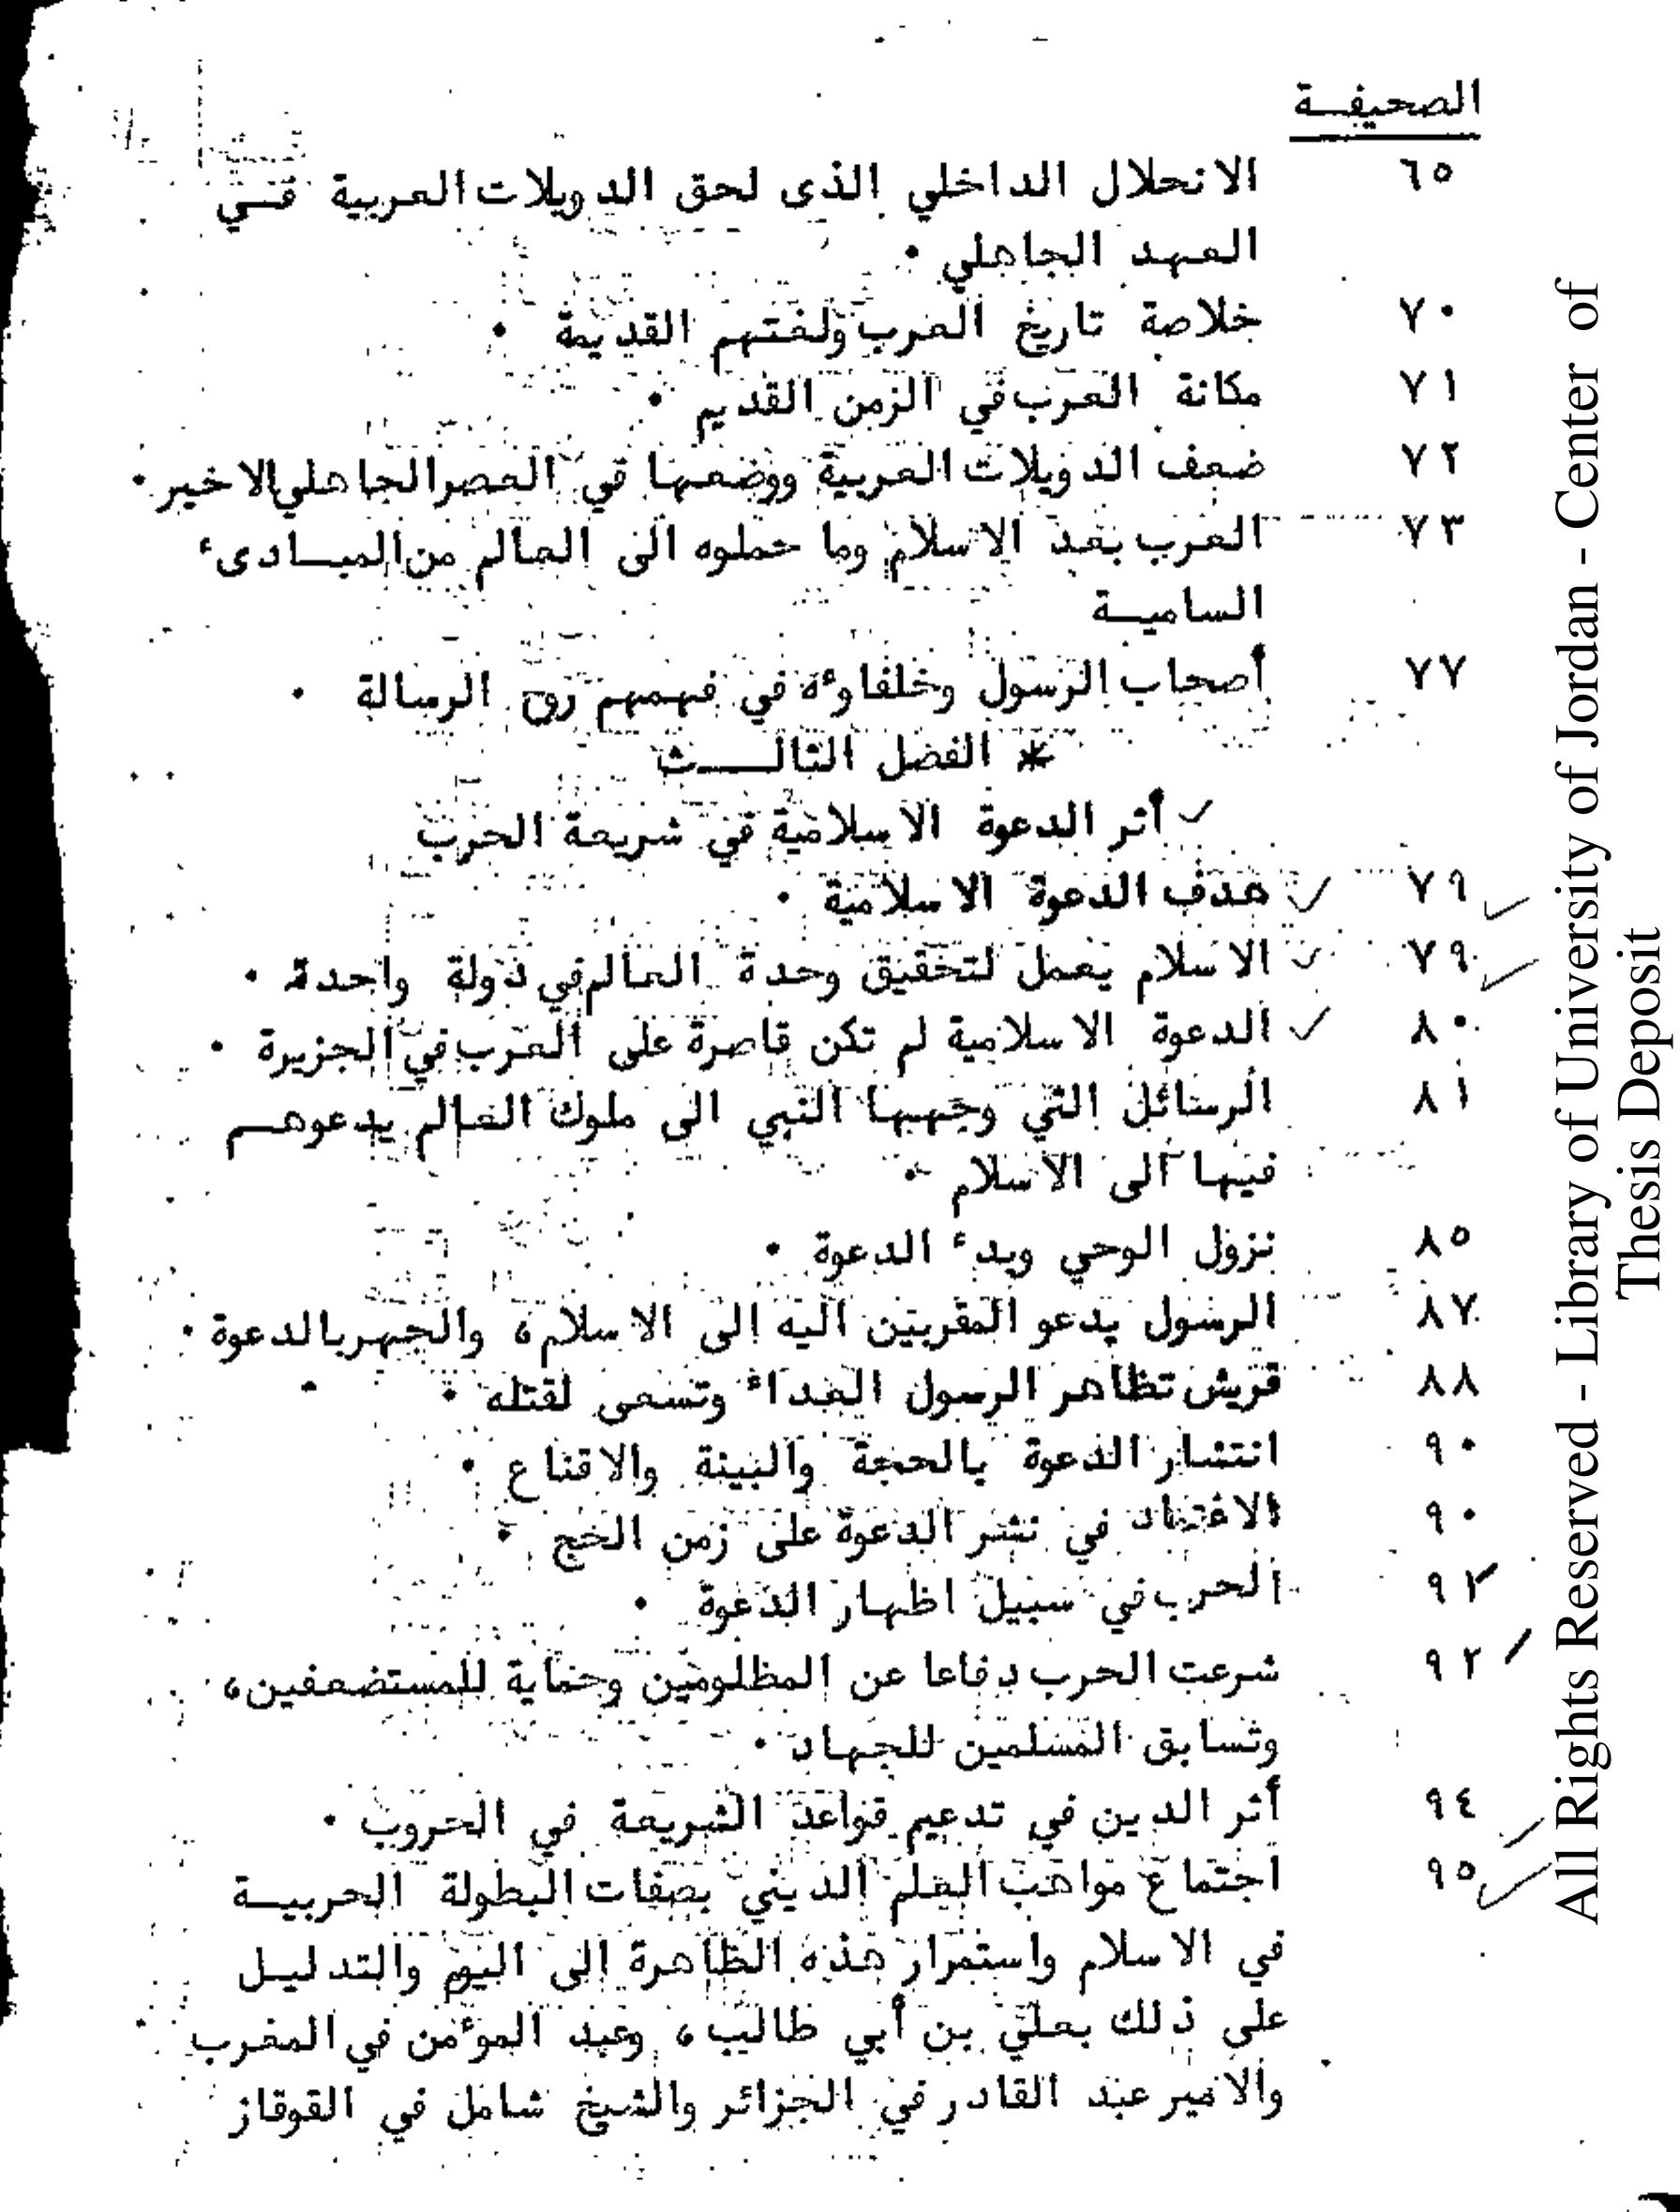 الصحيفــة
٦٥ الانحلال الداخلي الذى لحق الدويلات العربية فــي
العهد الجاهلي ٠
٧٠ خلاصة تاريخ العرب ولغتهم القديمة ٠
٧١ مكانة العرب في الزمن القديم ٠
٧٢ ضعف الدويلات العربية ووضعها في العصر الجاهلي الاخير ٠
٧٣ العرب بعد الاسلام وما حملوه الى العالم من المبــادىء
الساميــة
٧٧ أصحاب الرسول وخلفاوءه في فهمهم روح الرسالة ٠
* الفصل الثالــــث
أثر الدعوة الاسلامية في شريعة الحرب
٧٩ هدف الدعوة الاسلامية ٠
٧٩ الاسلام يعمل لتحقيق وحدة العالم في دولة واحدة ٠
٨٠ الدعوة الاسلامية لم تكن قاصرة على العرب في الجزيرة ٠
٨١ الرسائل التي وجهها النبي الى ملوك العالم يدعوهــم
فيها الى الاسلام ٠
٨٥ نزول الوحي وبدء الدعوة ٠
٨٧ الرسول يدعو المقربين اليه الى الاسلام، والجهر بالدعوة ٠
٨٨ قريش تظاهر الرسول العداء وتسعى لقتله ٠
٩٠ انتشار الدعوة بالحجة والبينة والاقناع ٠
٩٠ الاعتماد في نشر الدعوة على زمن الحج ٠
٩٢ الحرب في سبيل اظهار الدعوة ٠
٩٢ شرعت الحرب دفاعا عن المظلومين وحماية للمستضعفين،
وتسابق المسلمين للجهاد ٠
٩٤ أثر الدين في تدعيم قواعد الشريعة في الحروب ٠
٩٥ اجتماع مواهب العلم الديني بصفات البطولة الحربيــة
في الاسلام واستمرار هذه الظاهرة الى اليوم والتدليــل
على ذلك بعلي بن أبي طالب، وعبد الموءمن في المغرب
والامير عبد القادر في الجزائر والشيخ شامل في القوقاز
All Rights Reserved - Library of University of Jordan - Center of
Thesis Deposit